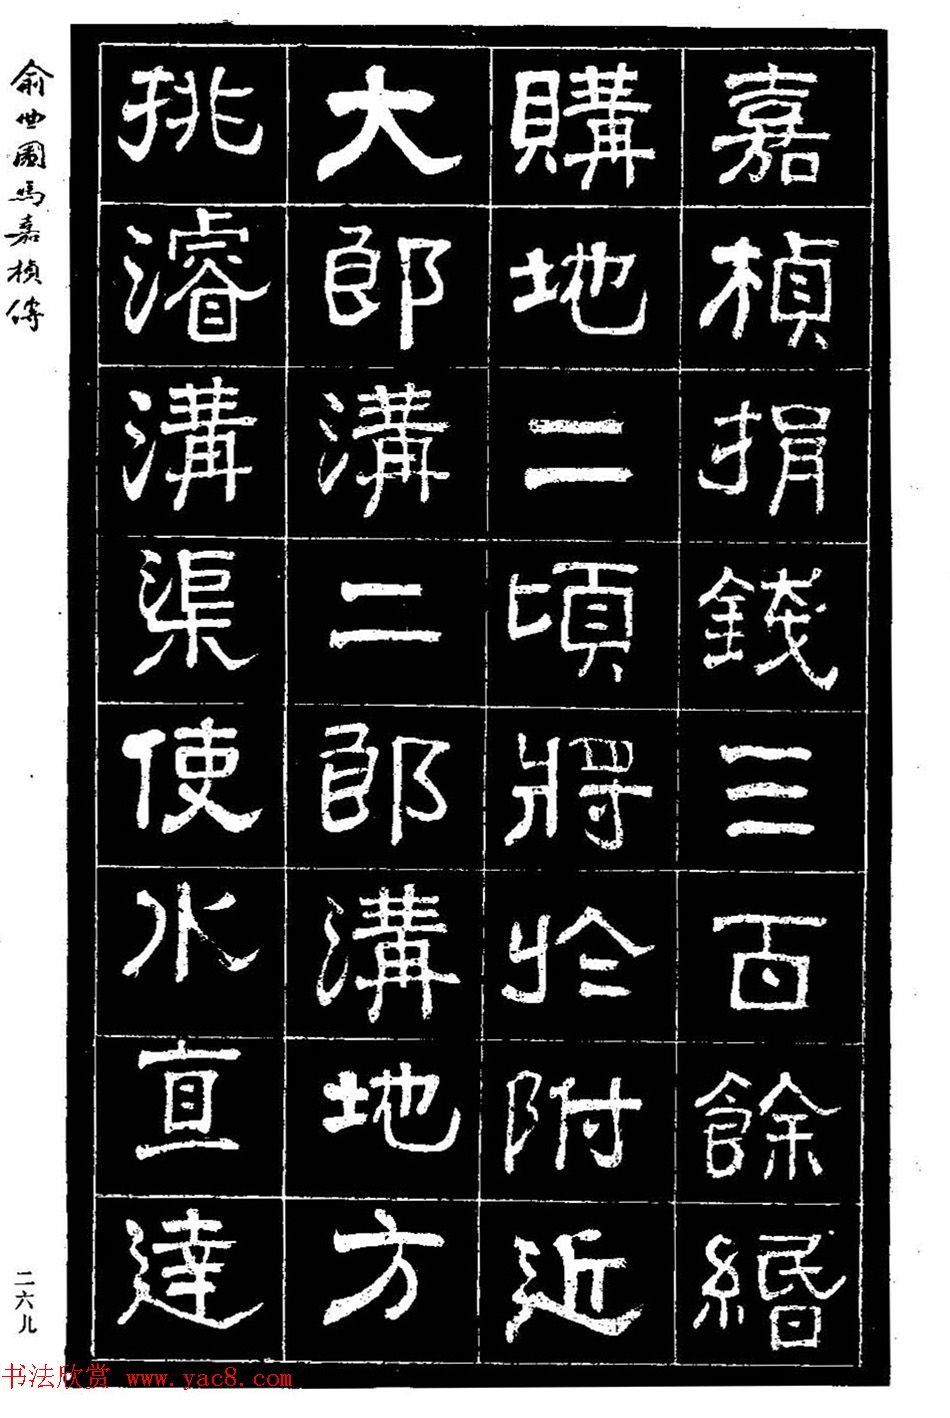 嘉楨捐錢三百餘緡
購地二頃將於附近
大郎溝二郎溝地方
挑濬溝渠使水直達
俞曲園馮嘉楨傳
二六九
书法欣赏 www.yac8.com